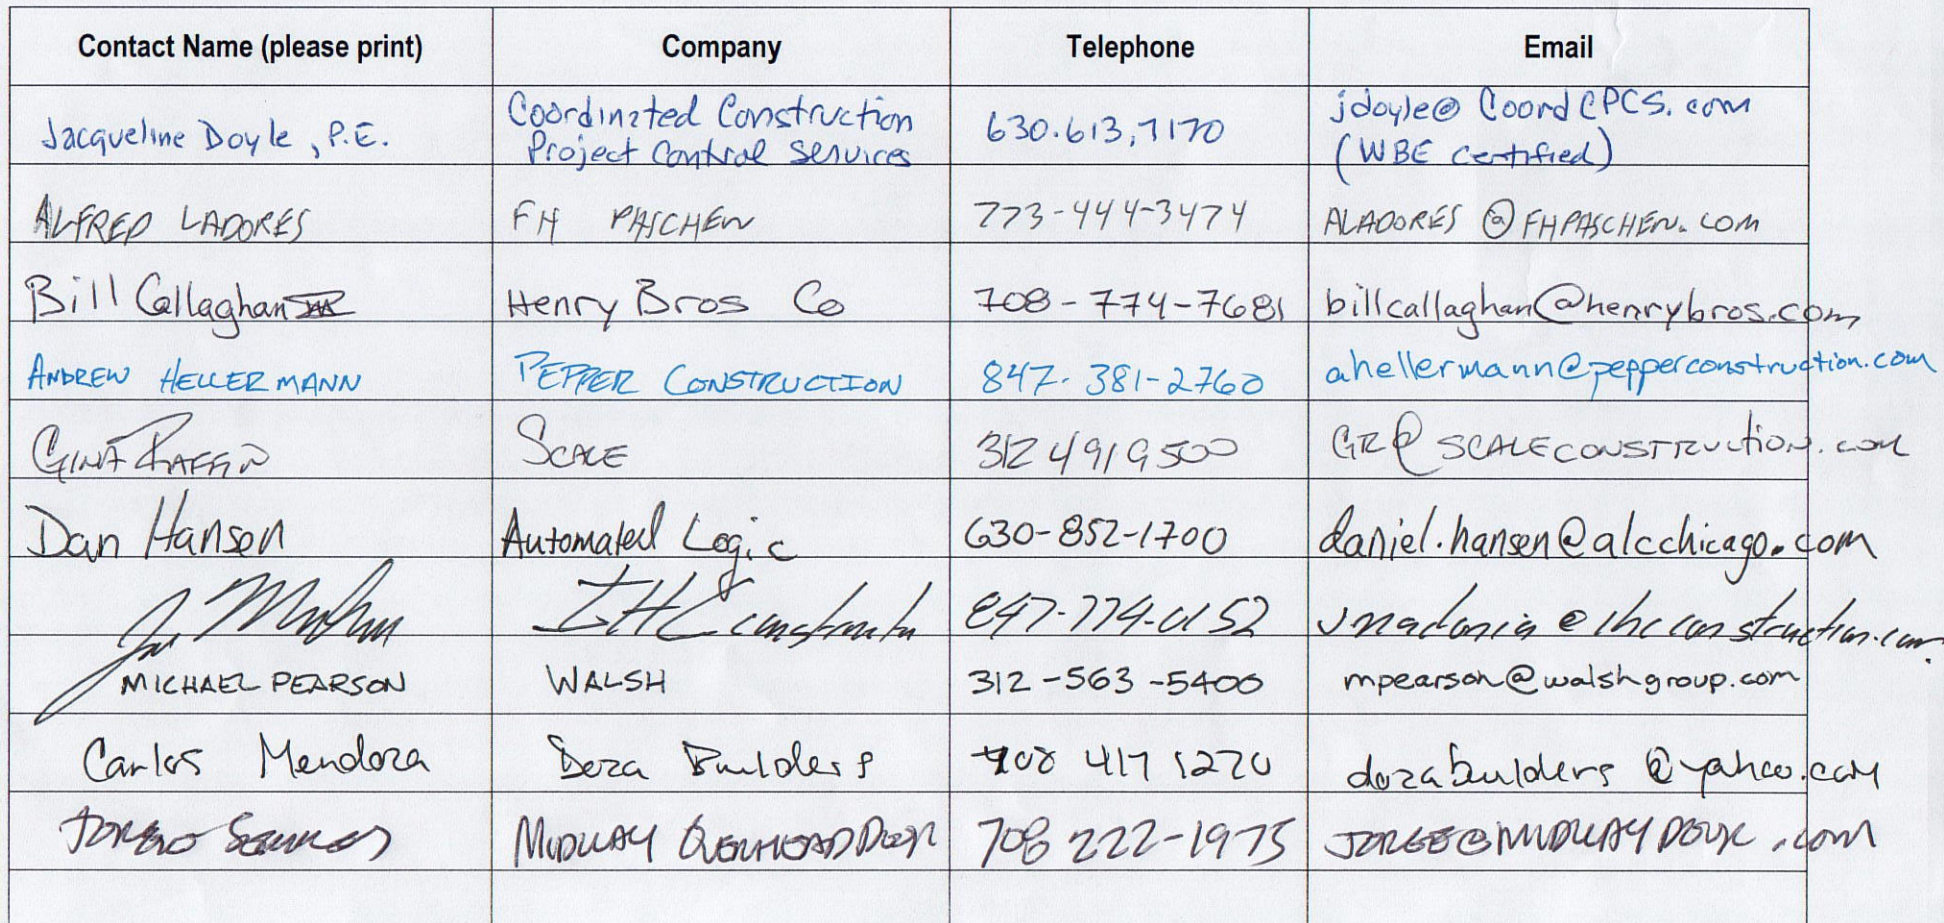 Contact Name (please print) Company Telephone Email
Jacqueline Doyle, P.E. Coordinated Construction 630.613.7170 jdoyle@CoordCPCS.com
Project Control Services (WBE Certified)
ALFRED LADORES FH PASCHEN 773-444-3474 ALADORES@FHPASCHEN.COM
Bill Callaghan Henry Bros Co 708-774-7681 billcallaghan@henrybros.com
ANDREW HELLERMANN PEPPER CONSTRUCTION 847-381-2760 ahellermann@pepperconstruction.com
GINA SCALE 312 491 9500 GR@SCALECONSTRUCTION.COM
Dan Hansen Automated Logic 630-852-1700 daniel.hansen@alcchicago.com
IHC Construction 847-774-0152 jmadonia@ihcconstruction.com
MICHAEL PEARSON WALSH 312-563-5400 mpearson@walshgroup.com
Carlos Mendoza Doza Builders 708 417 1270 dozabuilders@yahoo.com
MIDWAY OVERHEAD DOOR 708 222-1975 JORGE@MIDWAYDOOR.com